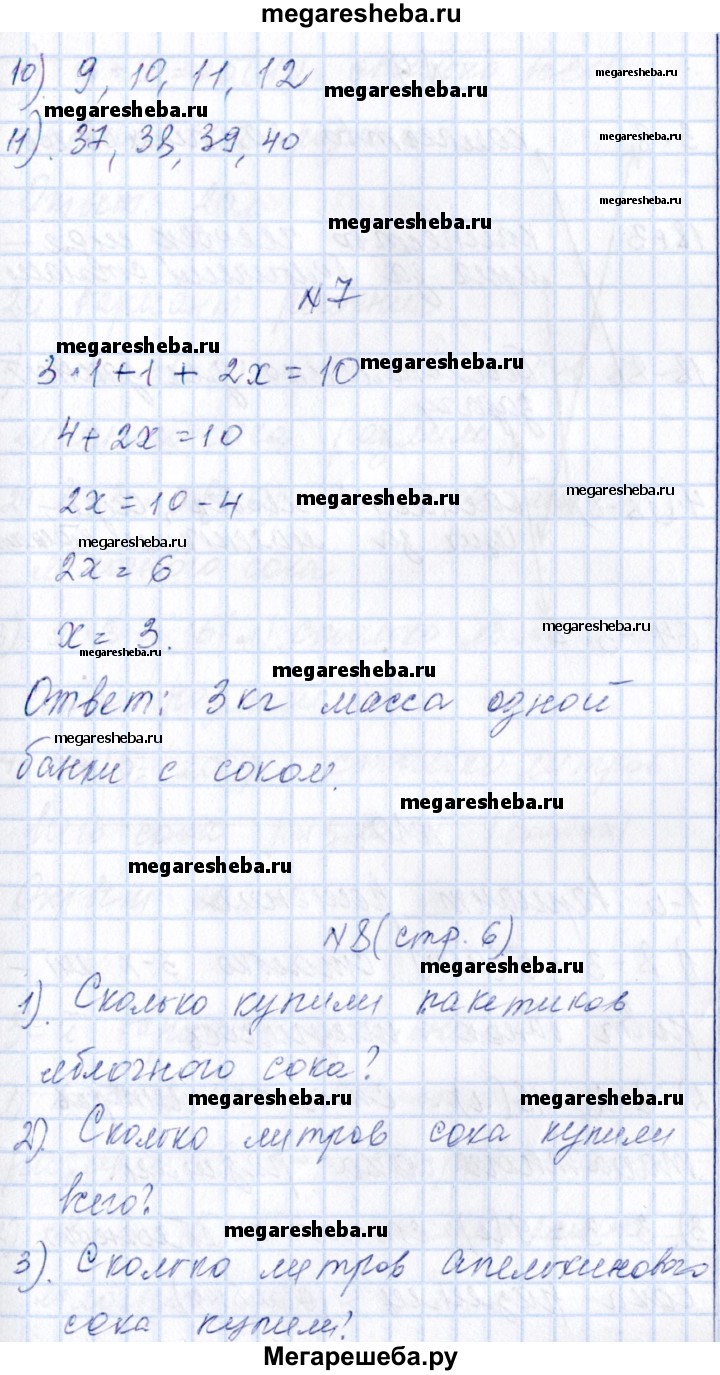 megaresheba.ru
10). 9, 10, 11, 12
megaresheba.ru
megaresheba.ru
megaresheba.ru
11). 37, 38, 39, 40
megaresheba.ru
megaresheba.ru
megaresheba.ru
N7
megaresheba.ru
megaresheba.ru
3·1+1 + 2x = 10
4+2x=10
2x=10-4
megaresheba.ru
megaresheba.ru
megaresheba.ru
2x=6
x= 3.
megaresheba.ru
megaresheba.ru
megaresheba.ru
Ответ: 3кг масса одной
megaresheba.ru
банки с соком.
megaresheba.ru
megaresheba.ru
N8(стр. 6)
megaresheba.ru
1). Сколько купили пакетиков
яблочного сока?
megaresheba.ru
megaresheba.ru
2). Сколько литров сока купили
всего?
megaresheba.ru
3). Сколько литров апельсинового
сока купили?
Мегарешеба.ру